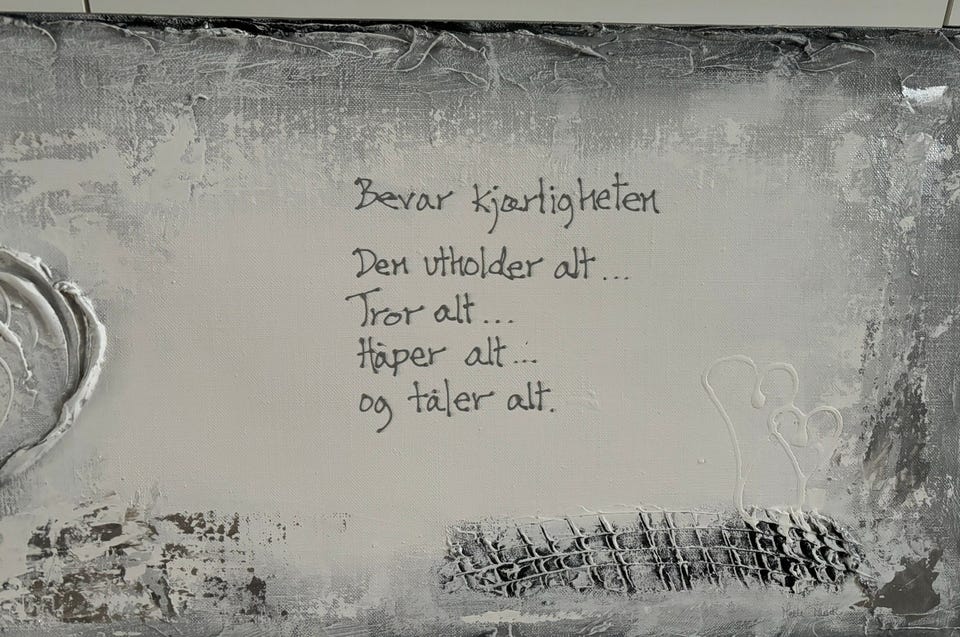 Bevar kjærligheten
Den utholder alt...
Tror alt...
Håper alt...
og tåler alt.